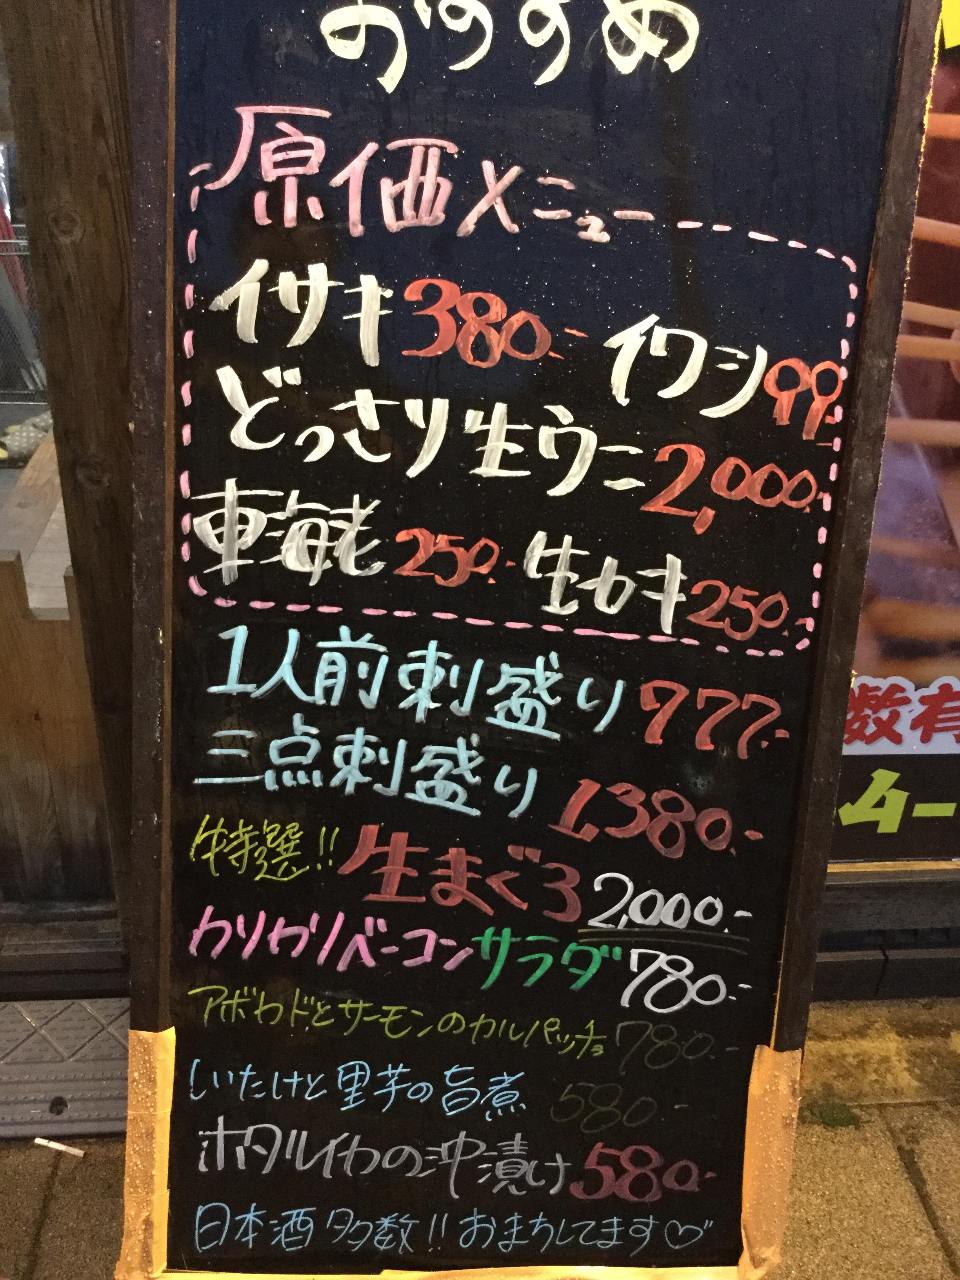 おすすめ
原価メニュー
イサキ 380- イワシ 99-
どっさり生ウニ 2,000-
車海老 250- 生カキ 250-
1人前刺盛り 777-
三点刺盛り 1,380-
特選!! 生まぐろ 2,000-
カリカリベーコンサラダ 780-
アボカドとサーモンのカルパッチョ 780-
しいたけと里芋の旨煮 580-
ホタルイカの沖漬け 580-
日本酒多数!! おまちしてます♡
数有
ムー